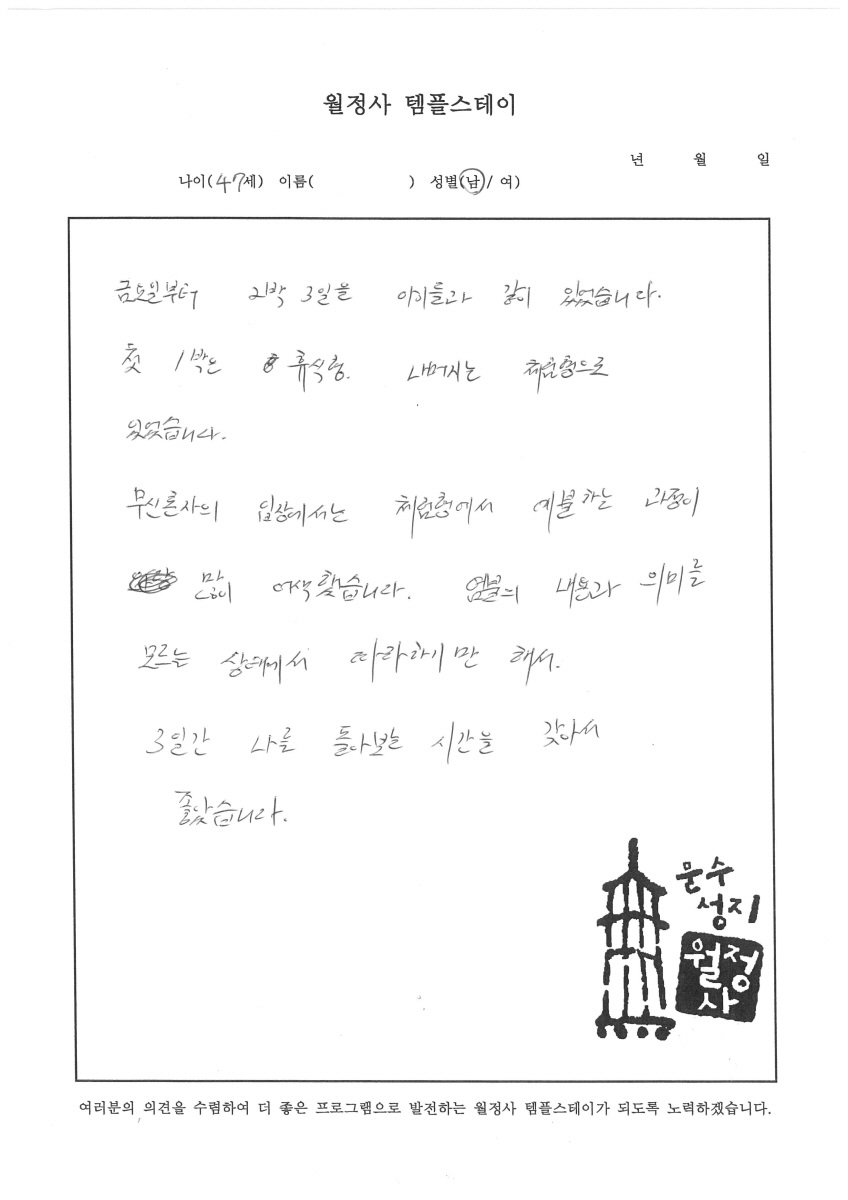 월정사 템플스테이
년 월 일
나이(47세) 이름( ) 성별(남/ 여)
금요일부터 2박 3일을 아이들과 같이 있었습니다.
첫 1박은 휴식형. 나머지는 체험형으로
있었습니다.
무신론자의 입장에서는 체험형에서 예불하는 과정이
많이 어색했습니다. 염불의 내용과 의미를
모르는 상태에서 따라하기만 해서.
3일간 나를 돌아보는 시간을 갖아서
좋았습니다.
문수
성지
월정
사
여러분의 의견을 수렴하여 더 좋은 프로그램으로 발전하는 월정사 템플스테이가 되도록 노력하겠습니다.